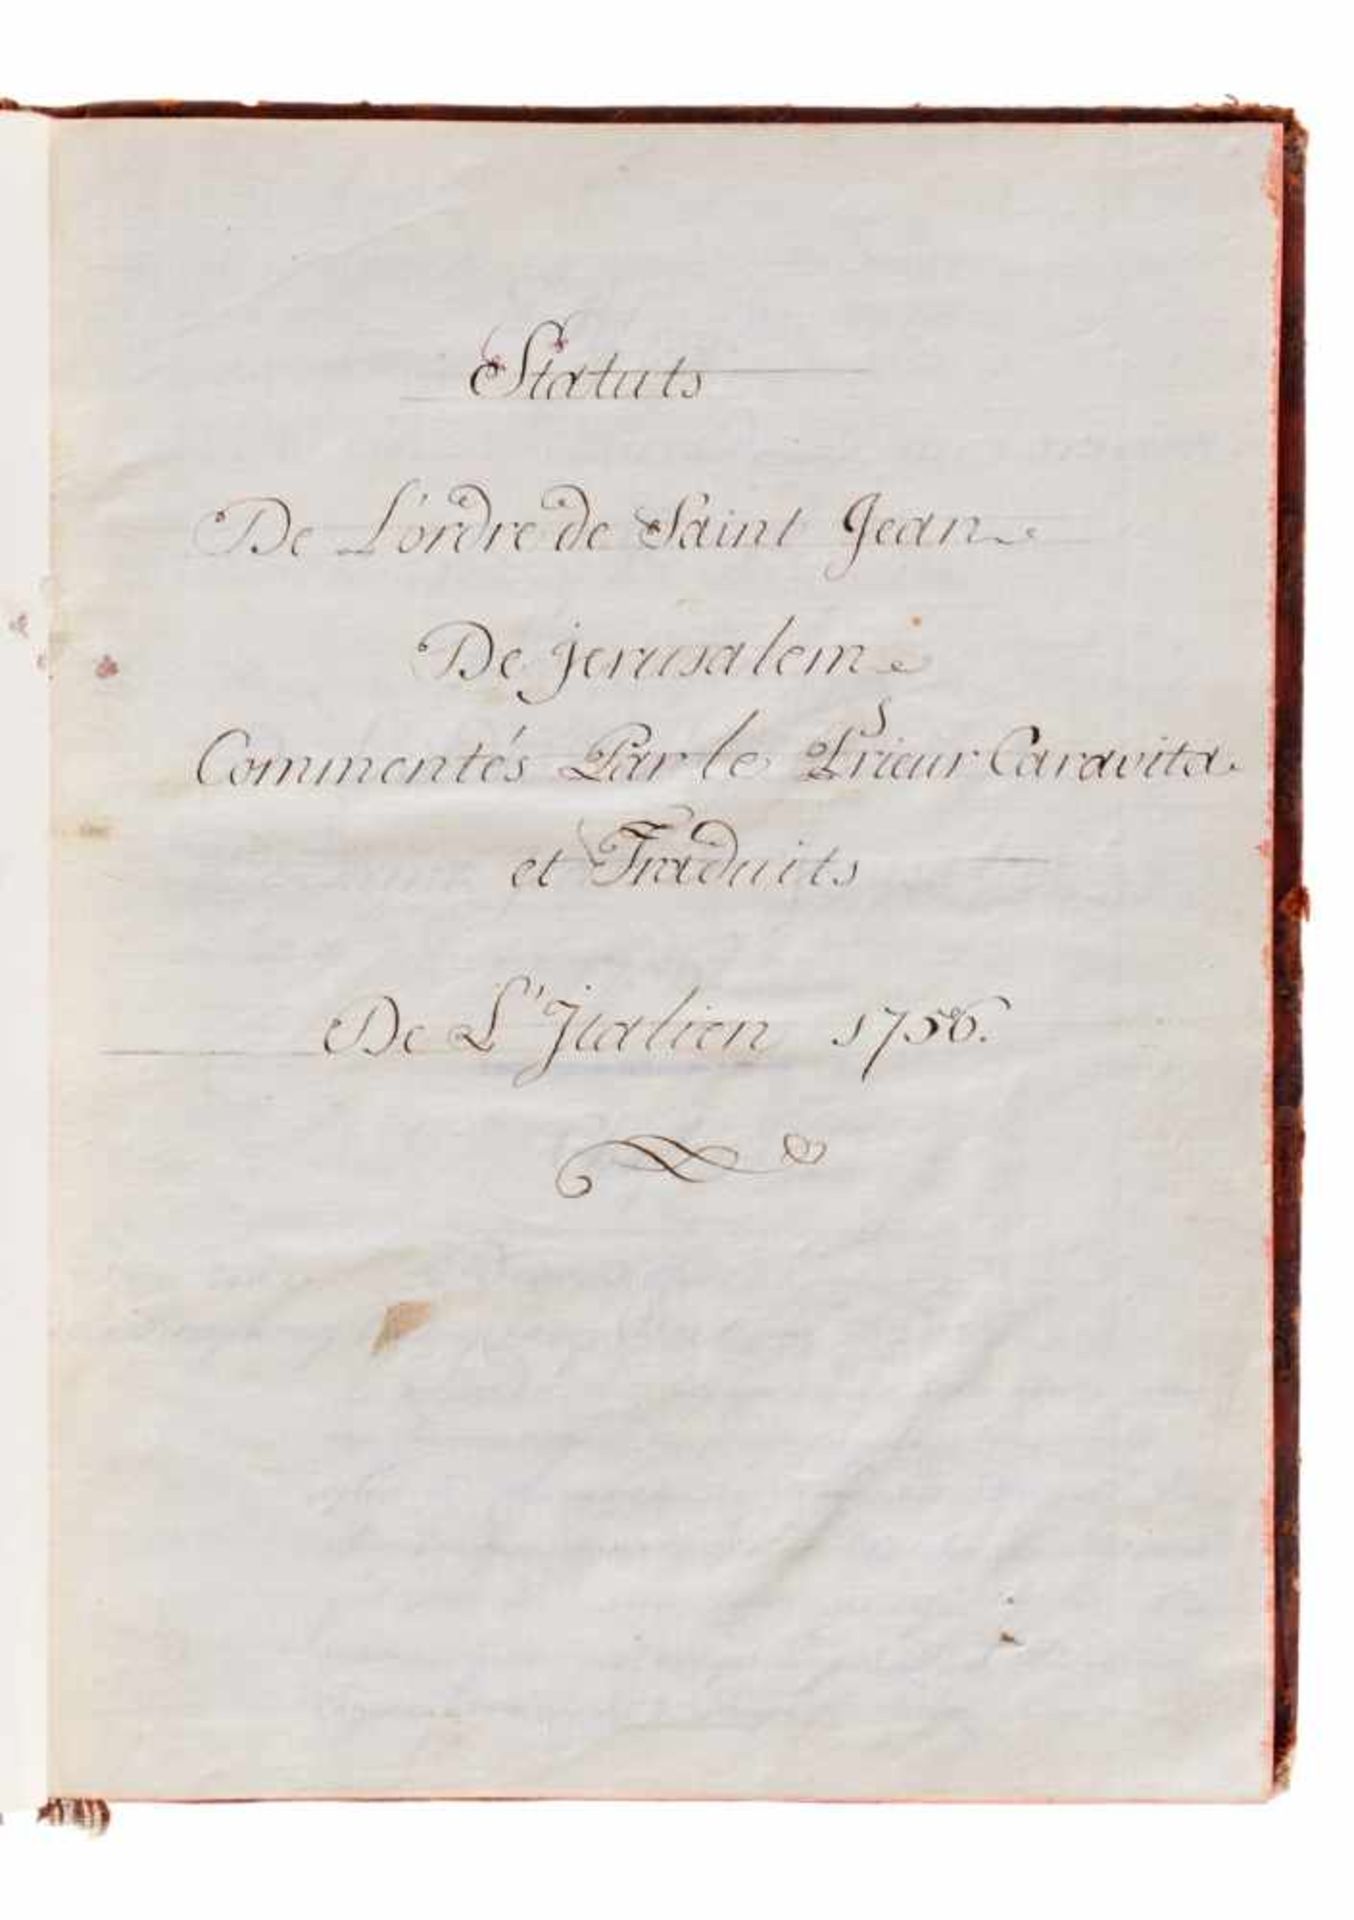 Statuts
De L'ordre de Saint Jean
De jerusalem
Commentés Par le Prieur Caravita
et Traduits
De L'Italien 1756.